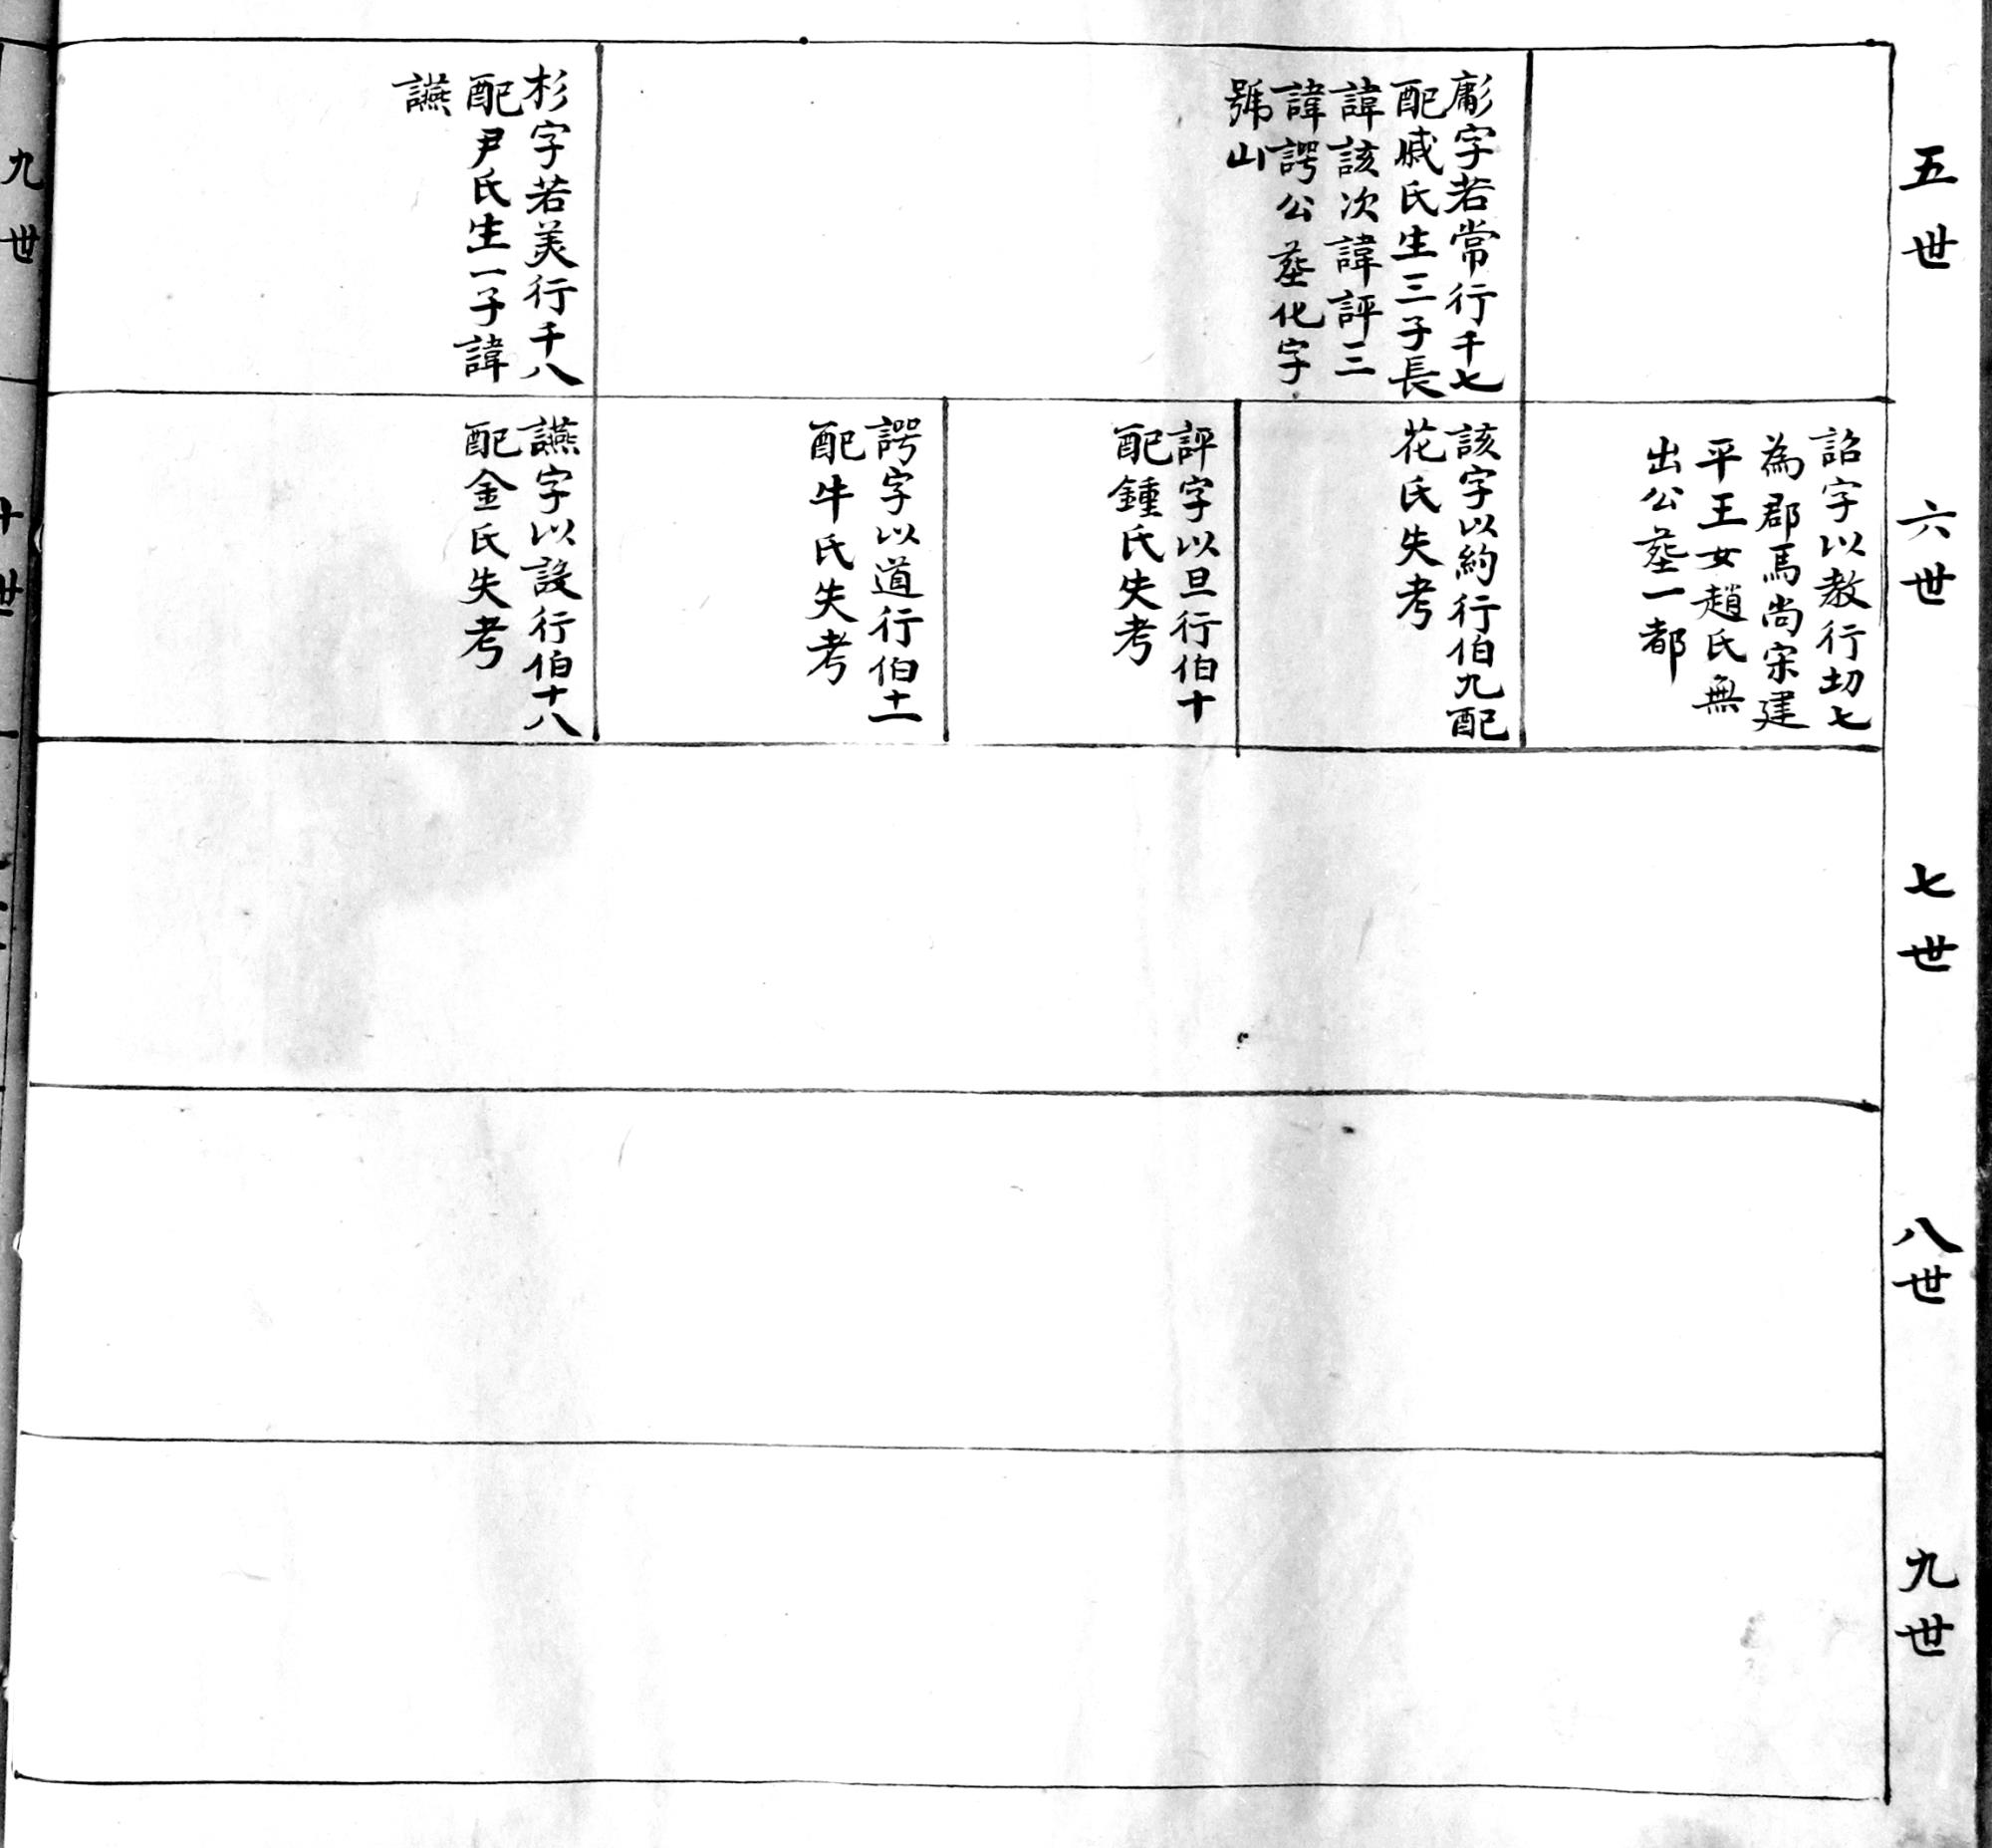 五世
彪字若常行千七
配戚氏生三子長
諱該次諱評三
諱諤公塟化字
號山
杉字若美行千八
配尹氏生一子諱
讌
六世
詔字以教行切七
為郡馬尚宋建
平王女趙氏無
出公塟一都
該字以約行伯九配
花氏失考
評字以旦行伯十
配鍾氏失考
諤字以道行伯十一
配牛氏失考
讌字以設行伯十八
配金氏失考
七世
八世
九世
九世
十世